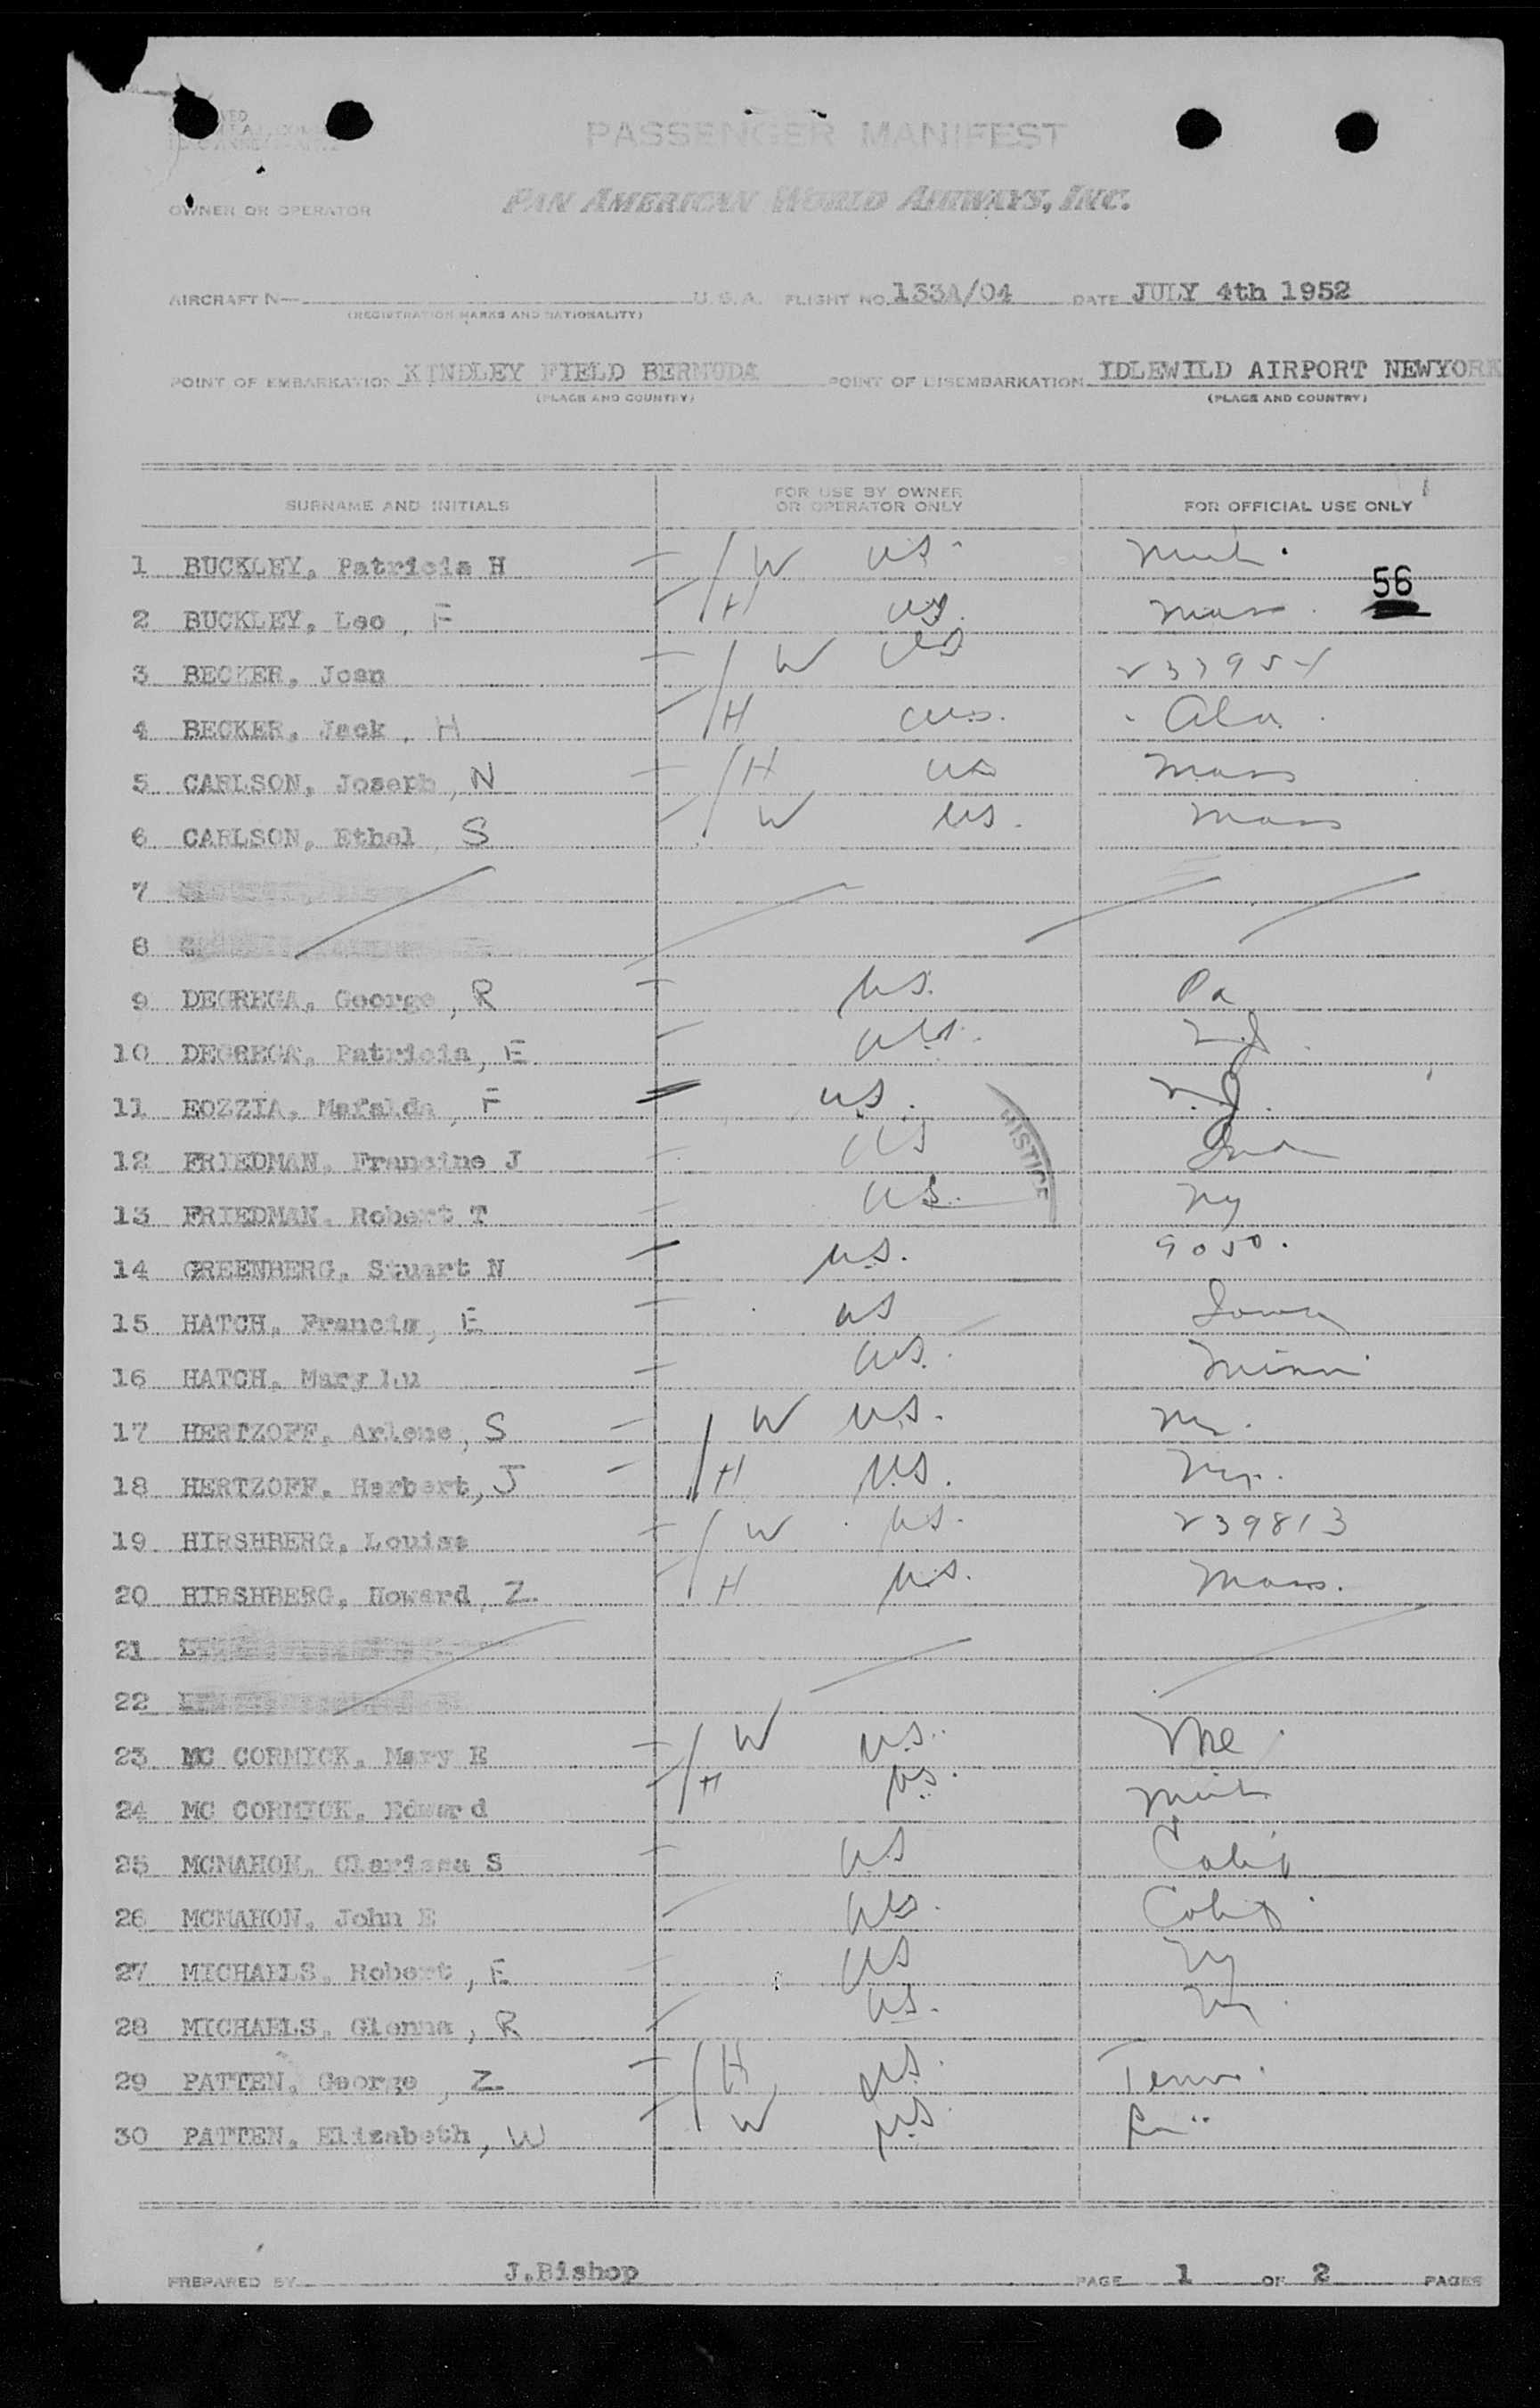 PASSENGER MANIFEST
OWNER OR OPERATOR PAN AMERICAN WORLD AIRWAYS, INC.
AIRCRAFT N— U. S. A. FLIGHT NO. 133A/04 DATE JULY 4th 1952
(REGISTRATION MARKS AND NATIONALITY)
POINT OF EMBARKATION KINDLEY FIELD BERMUDA POINT OF DISEMBARKATION IDLEWILD AIRPORT NEWYORK
(PLACE AND COUNTRY) (PLACE AND COUNTRY)
SURNAME AND INITIALS FOR USE BY OWNER OR OPERATOR ONLY FOR OFFICIAL USE ONLY
1 BUCKLEY, Patricia H W US.
56
2 BUCKLEY, Leo, F H US. Mass.
3 BECKER, Joan W US
4 BECKER, Jack, H H US. Ala.
5 CARLSON, Joseph, N H US Mass
6 CARLSON, Ethel, S W US. Mass
7
8
9 DEGREGA, George, R US. Pa
10 DEGREGA, Patricia, E US. N.J.
11 EOZZIA, Mafalda, F US. N.J.
12 FRIEDMAN, Francine J US
JUSTICE
13 FRIEDMAN, Robert T US. NY
14 GREENBERG, Stuart N US. 9050.
15 HATCH, Francis, E US Iowa
16 HATCH, Mary Lu US. Minn
17 HERTZOFF, Arlene, S W US. NY.
18 HERTZOFF, Herbert, J H US. NY.
19 HIRSHBERG, Louise W US. 239813
20 HIRSHBERG, Howard, Z H US. Mass.
21
22
23 MC CORMICK, Mary E W US. Me
24 MC CORMICK, Edward H US. Mich
25 MCMAHON, Clarissa S US Calif
26 MCMAHON, John E US. Calif
27 MICHAELS, Robert, E US NY
28 MICHAELS, Glenna, R US. NY.
29 PATTEN, George, Z H US. Tenn.
30 PATTEN, Elizabeth, W W US
PREPARED BY J.Bishop PAGE 1 OF 2 PAGES